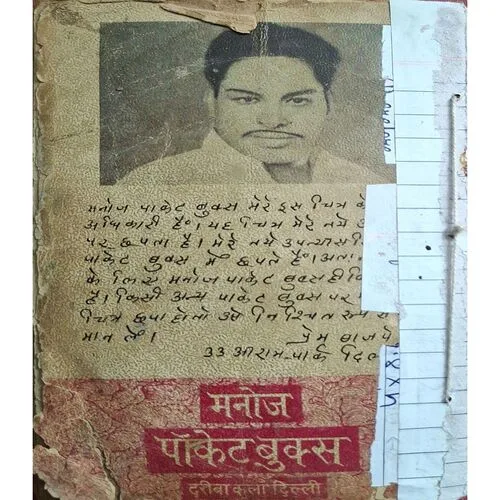 मनोज पाकेट बुक्स मेरे इस चित्र के
अधिकारी हैं। यह चित्र मेरे नये
पर छपता है। मेरे नये उपन्यास
पाकेट बुक्स में छपते हैं। अतः
के लिए मनोज पाकेट बुक्स ही
है। किसी अन्य पाकेट बुक्स पर
चित्र छपा हो तो उसे निश्चित रूप से
मान लें।
प्रेम बाजपे
33 श्रीराम-पार्क दिल
मनोज
पॉकेट बुक्स
दरीबा कलां दिल्ली